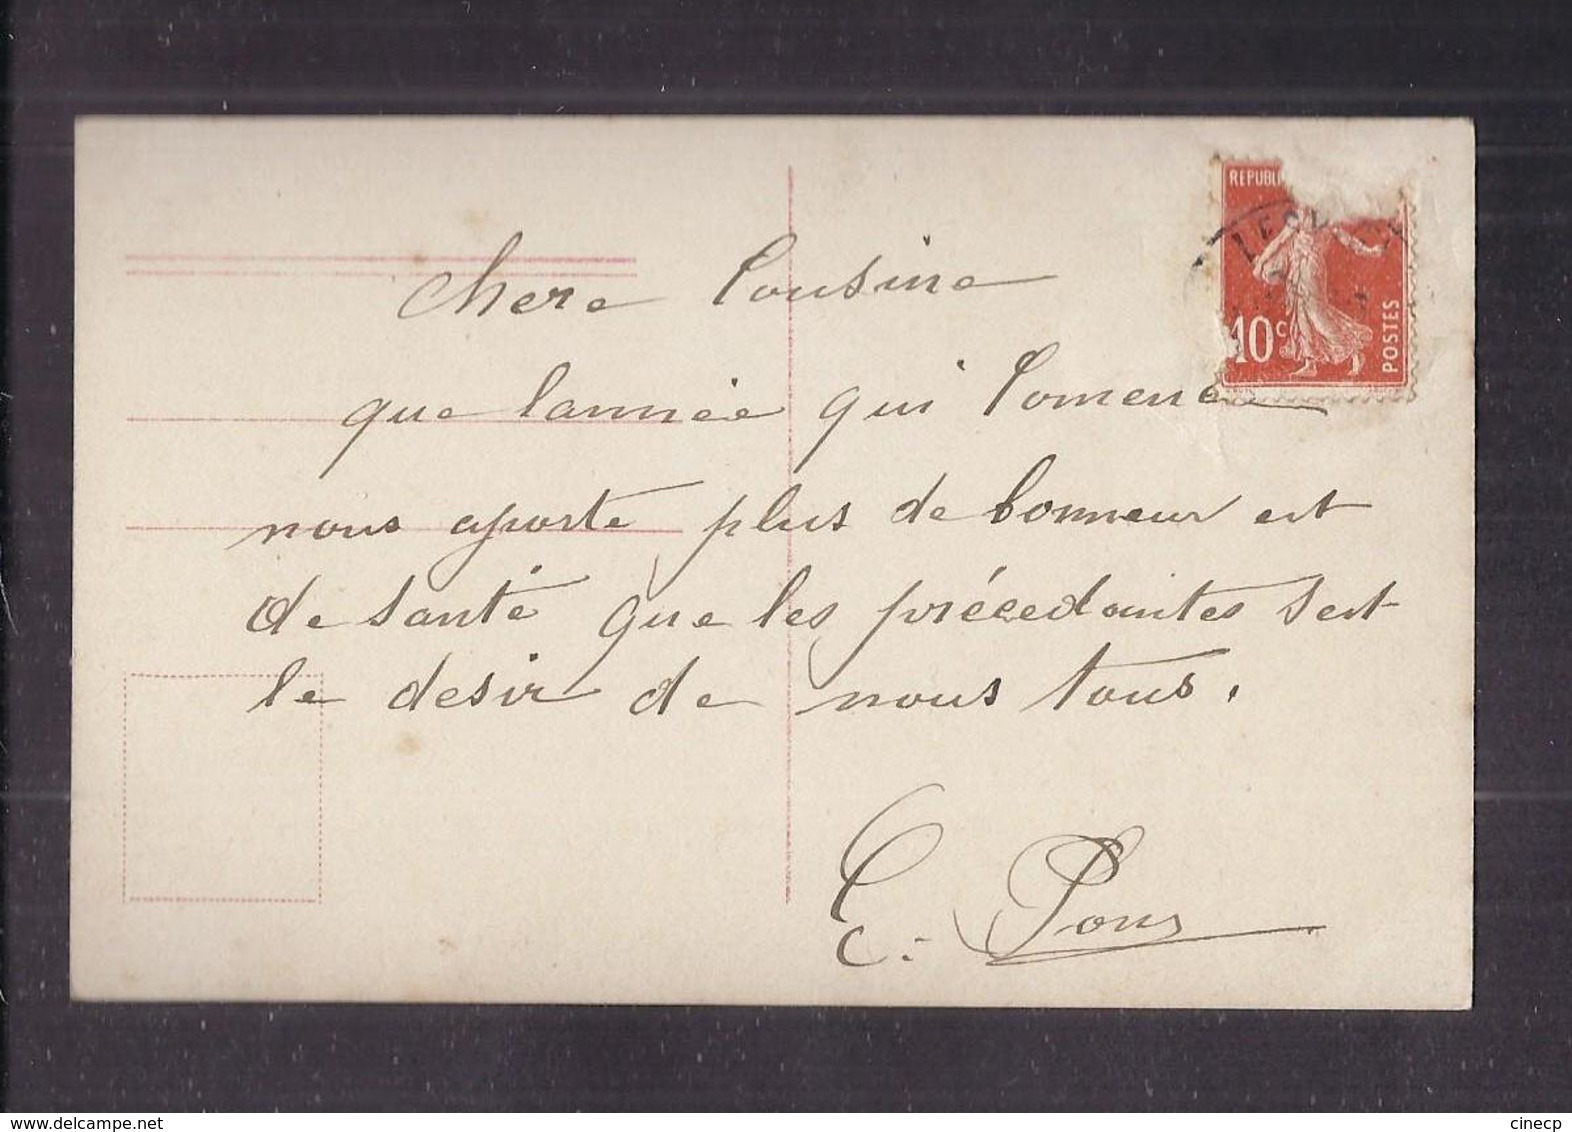 REPUBL
10c
POSTES
Chere Cousine
que lannée qui Comence
nous aporte plus de bonneur est
de santé que les précedantes sest
le desir de nous tous.
E. Pons
www.delcampe.net
cinecp